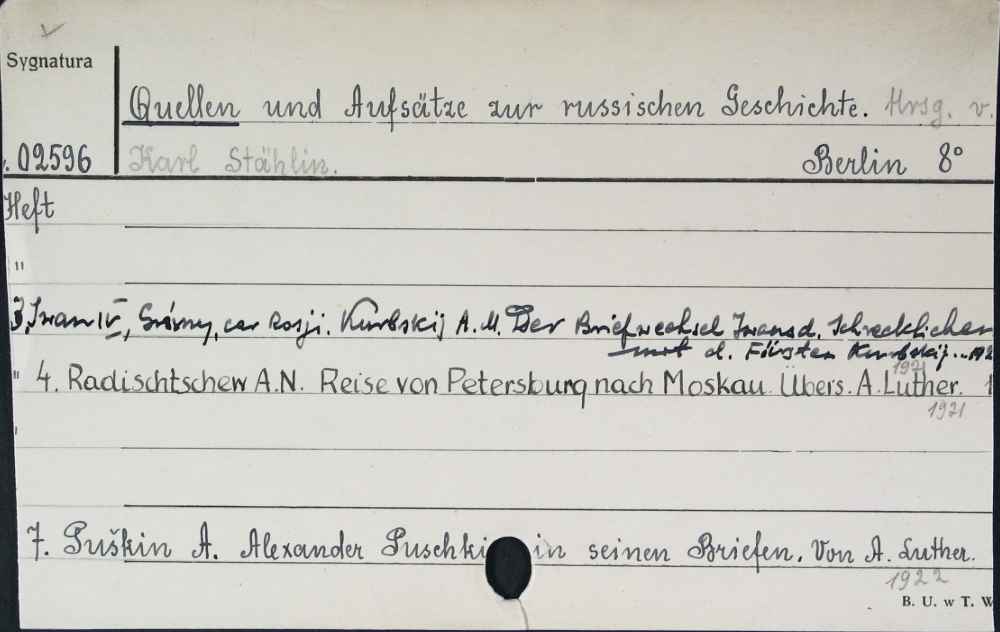 Sygnatura
Quellen und Aufsätze zur russischen Geschichte. Hrsg. v.
02596 Karl Stählin. Berlin 8°
Heft
"
3. Iwan IV, Groźny, car Rosji. Kurbskij A. M. Der Briefwechsel Iwans d. Schrecklichen
mit d. Fürsten Kurbskij... 192
1921
" 4. Radischtschew A.N. Reise von Petersburg nach Moskau. Übers. A. Luther. 1
1921
7. Puškin A. Alexander Puschki in seinen Briefen. Von A. Luther.
1922
B. U. w T. W